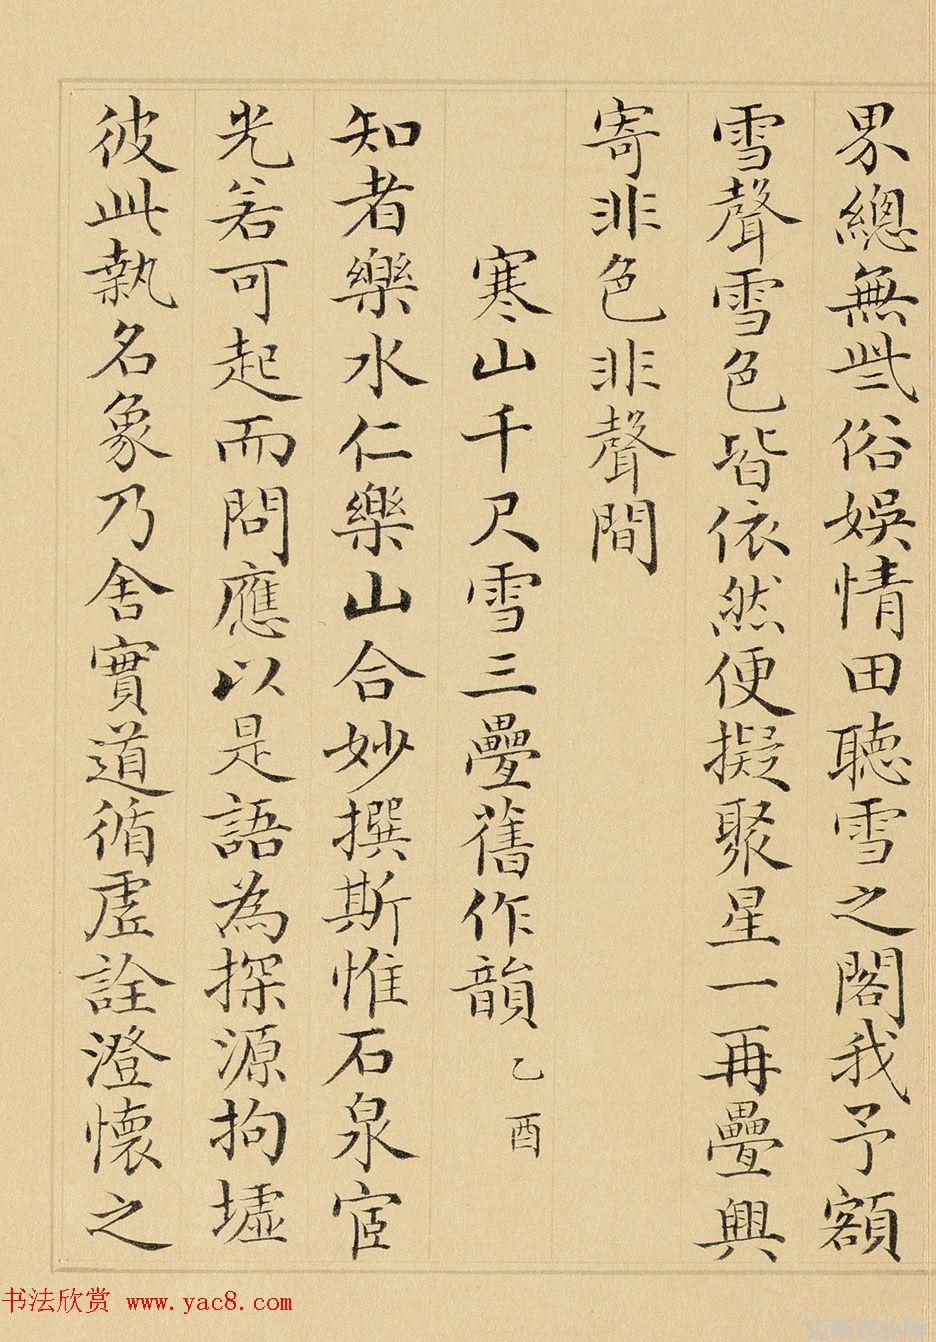 界總無些俗娛情田聽雪之閣我予額
雪聲雪色皆依然便擬聚星一再疊興
寄非色非聲間
寒山千尺雪三疊舊作韻 乙酉
知者樂水仁樂山合妙撰斯惟石泉宧
光若可起而問應以是語為探源拘墟
彼此執名象乃舍實道循虛詮澄懷之
书法欣赏 www.yac8.com